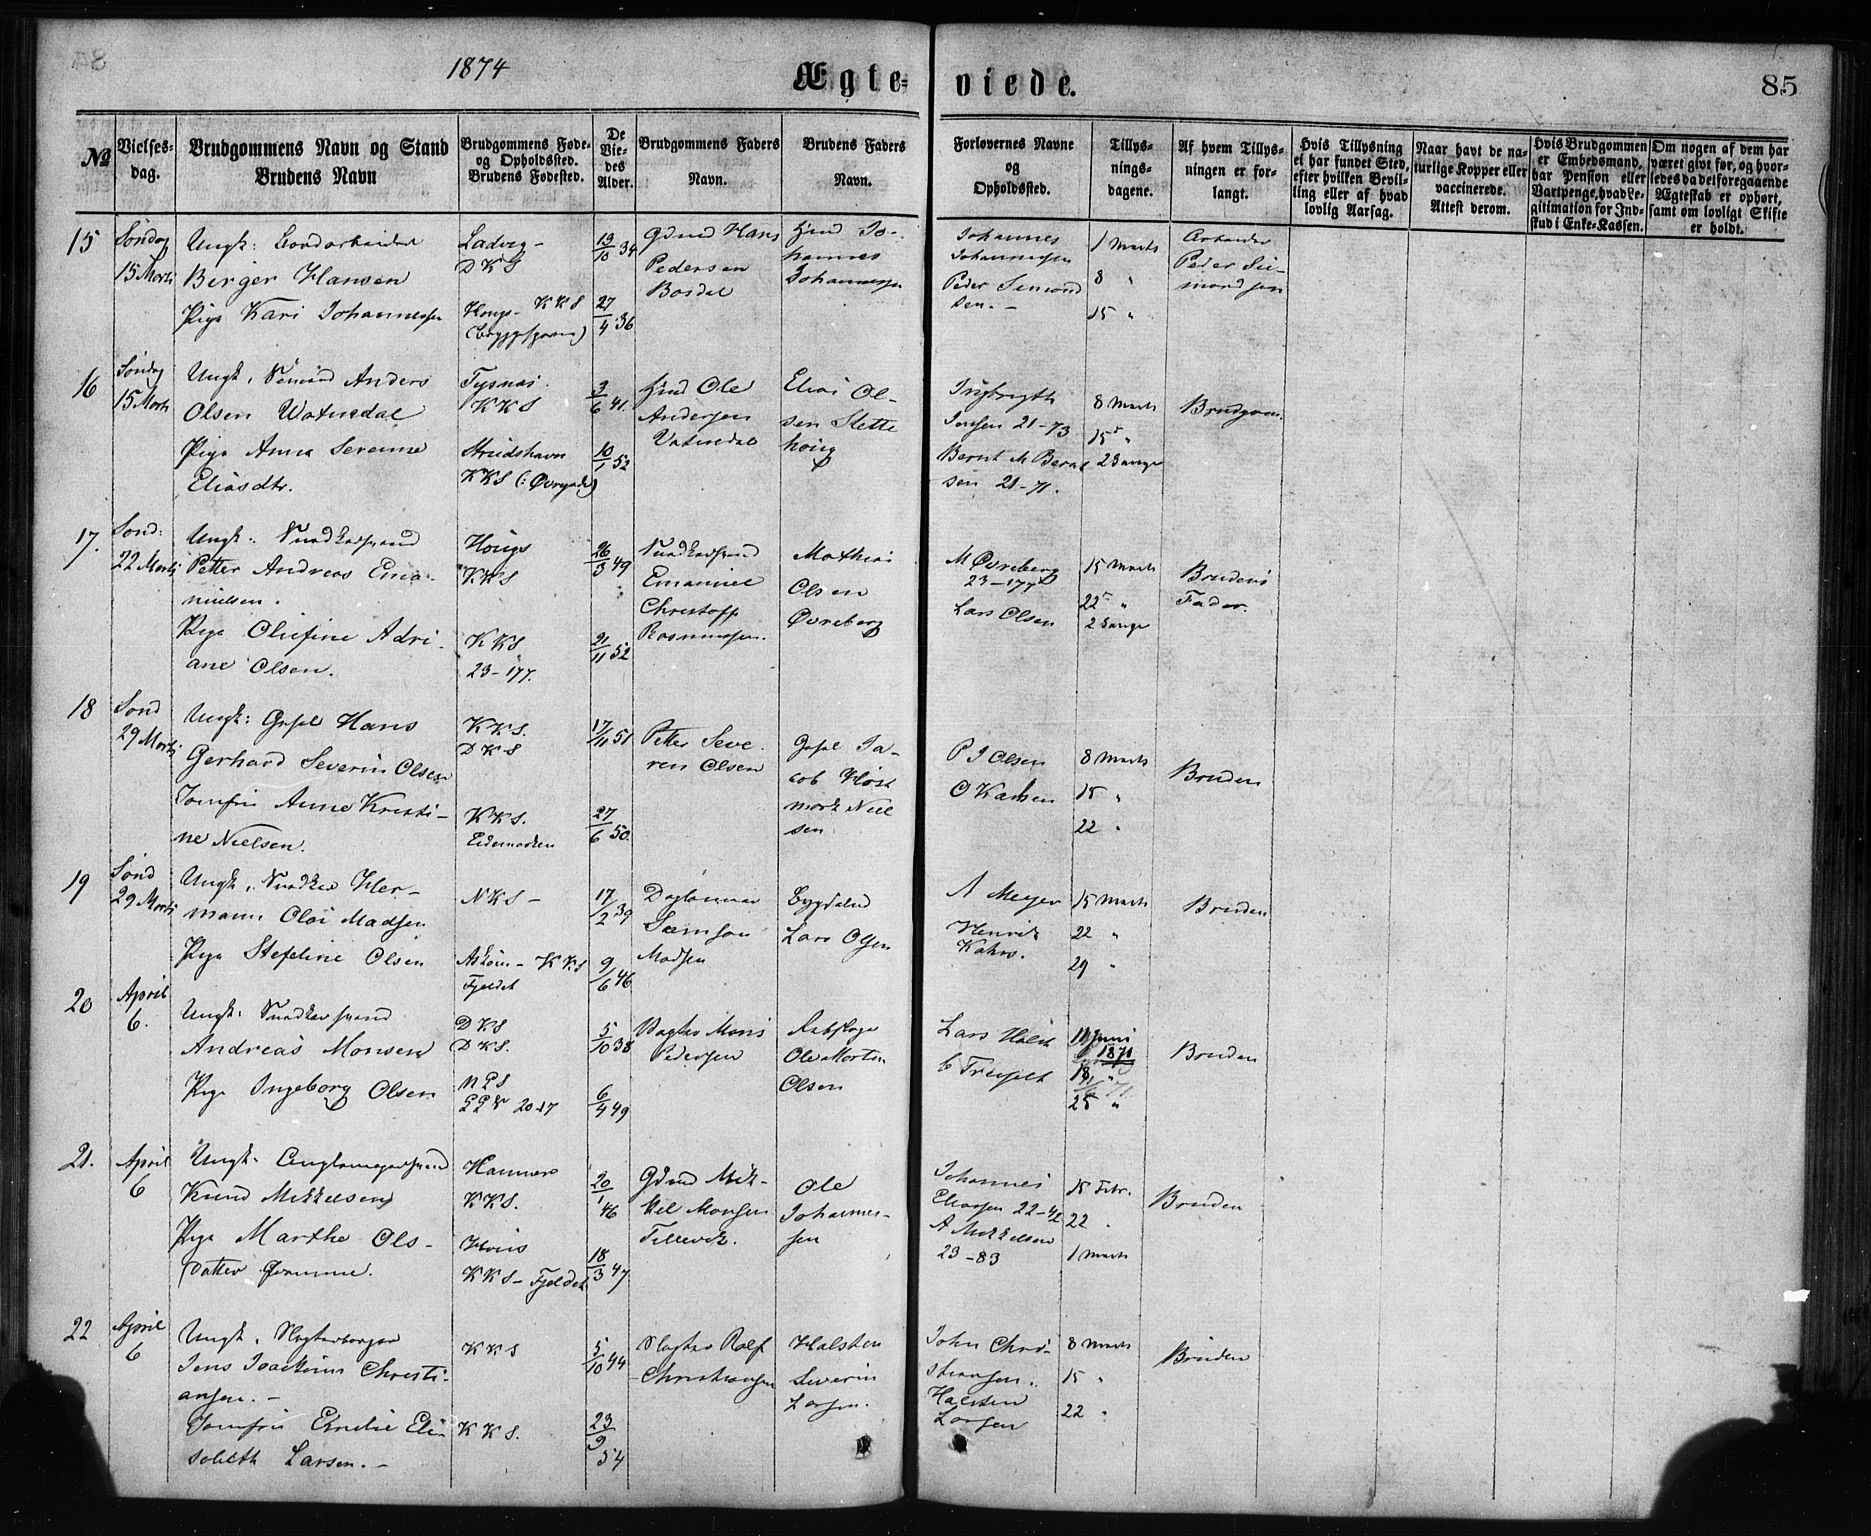 1874
Ægte-
viede.
85
№
Vielses-
dag.
Brudgommens Navn og Stand
Brudens Navn
Brudgommens Føde-
og Opholdssted.
Brudens Fødested.
De
Vie-
des
Alder.
Brudgommens Faders
Navn.
Brudens Faders
Navn.
Forlovernes Navne
og
Opholdssted.
Tillys-
nings-
dagene.
Af hvem Tillys-
ningen er for-
langt.
Hvis Tillysning
ei har fundet Sted,
efter hvilken Bevil-
ling eller af hvad
lovlig Aarsag.
Naar havt de na-
turlige Kopper eller
vaccinerede.
Attest derom.
Hvis Brudgommen
er Embedsmand,
har Pension eller
Vartpenge, hvad Le-
gitimation for Ind-
skud i Enke-Kassen.
Om nogen af dem har
været givt før, og hvor-
ledes da det foregaaende
Ægteskab er ophørt,
samt om lovligt Skifte
er holdt.
15
Søndag
15 Marts
Ungk:
Birger Hansen
Pige Kari Johannessen
Ladvig -
D K S
K K S
13/10 34
27/4 36
Gdmd Hans
Pedersen
Bordal
Hmd Jo-
hannes
Johannessen
Johannes
Johannessen
Peder Simond
sen. -
1 Marts
8 "
15 "
Arbeider
Peder Si-
mondsen
16
Søndag
15 Marts
Ungk, Sømand Anders
Olsen Watnedal
Pige Anna Serenne
Eliasdtr.
Tysnæs
K K S
Strudshavn
K K S (: Øvregade)
3/6 41.
10/1 52
Hmd Ole
Andersen
Vatnedal
Elias Ol-
sen Slette
houg
Jensen 21-73
Bernt M Bernt
sen 21-71.
8 Marts
15 "
2 Gange
Brudgom.
17.
Sønd:
22 Marts
Ungk:
Petter Andreas Ema-
nuelsen.
Pige Olufine Adri-
ane Olsen.
Hougs
K K S
K K S
23-177.
26/3 49
21/11 52
Emanuel
Christoff
Rasmussen.
Mathias
Olsen
Øvreberg
M Øvreberg
23-177
Lars Olsen
15 Marts
22 "
2 Gange
Brudens
Fader.
18
Sønd
29 Marts
Ungk: Gesel Hans
Gerhard Severin Olsen
Jomfru Anne Kristi-
ne Nielsen.
K K S.
D K S
K K S.
Eidemarken
17/11 51
27/6 50.
Petter Seve-
ren Olsen
Gesel Ja-
cob Høst
mark Niel
sen
P J Olsen
O Karlsen
8 Marts
15 "
22 "
Bruden
19
Sønd
29 Marts
Ungk, Her-
mann Olai Madsen
Pige Stefeline Olsen
N K S -
Askøin - K K S
Fjeldet
17/2 39
9/6 46
Samson
Madsen
Lars Olsen
A Meyer
Henrik
Kahrs.
15 Marts
22 "
29 "
Bruden
20
April
6.
Ungk:
Andreas Monsen
Pige Ingeborg Olsen
D K S
D K S.
N P S
20-17
5/10 38
6/4 49
Mons
Pedersen
Ole Morten
Olsen
Lars Holdt
11 Juni
1871
18 "
25 "
Bruden
21.
April
6
Ungk.
Knud Mikkelsen
Pige Marthe Ols-
datter
Hammer
K K S.
Houis
K K S - Fjeldet
20/1 46
18/3 47
Gdmd Mik-
kel Monsen
Tellevik.
Ole
Johannes-
sen
Johannes
Eliassen 22-42
A Mikkelsen
23-83
15 Febr.
22 "
1 Marts
Bruden
22
April
6
Ungk, Slagterborger
Jens Joackim Christi-
ansen. -
Jomfru Emilie Eli-
sabeth Larsen. -
K K S
K K S.
5/10 44
23/9 54
Slagter Rolf
Christiansen
Halsten
Severin
Larsen.
John Chri-
stiansen.
Halsten
Larsen
8 Marts
15 "
22 "
Bruden